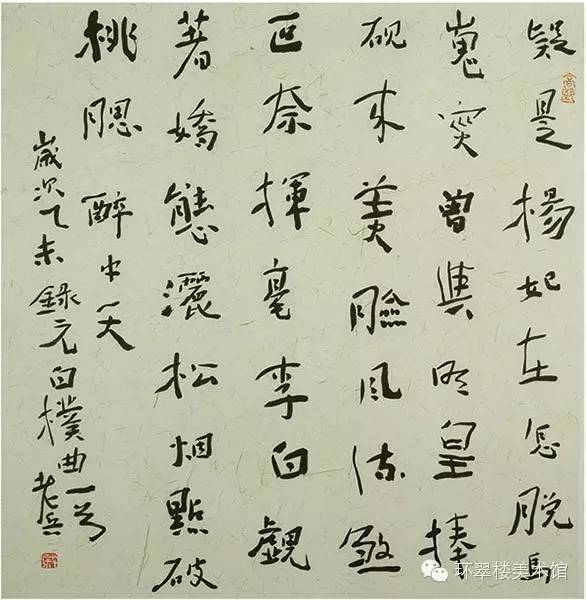 疑是楊妃在怎脫馬
嵬災曾與明皇捧
硯来美臉風流煞
叵奈揮毫李白覷
著嬌態灑松烟點破
桃腮 醉中天
歲次乙未錄元白樸曲一首 老兵
环翠楼美术馆